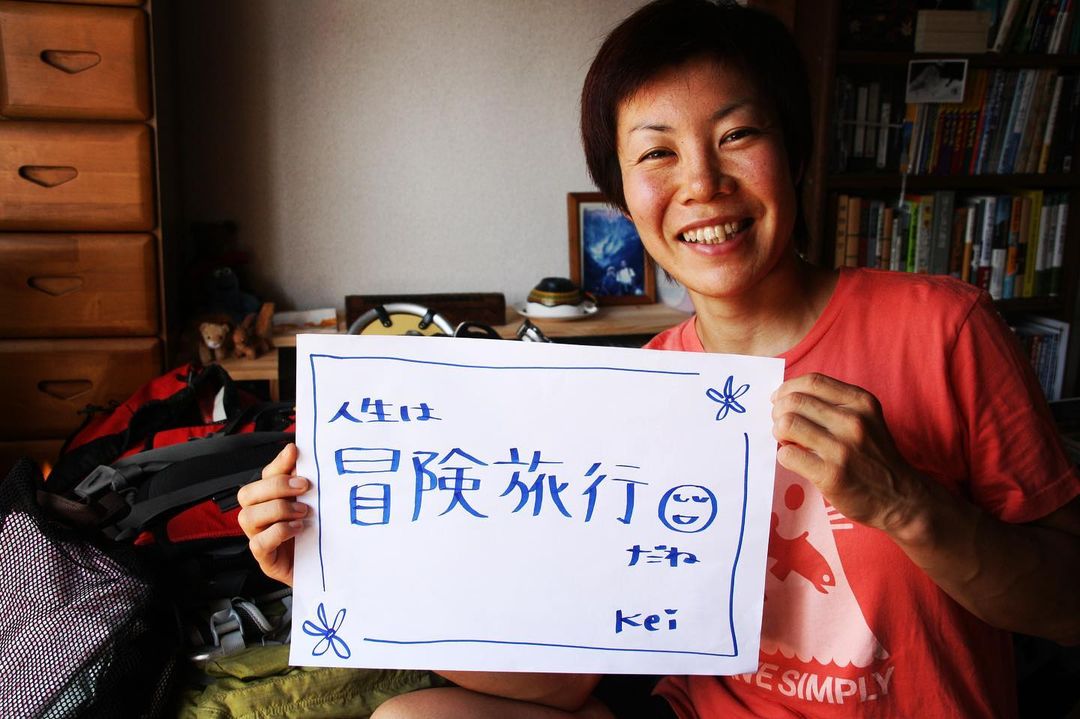 人生は
冒険旅行
だね
Kei
SIMPLY